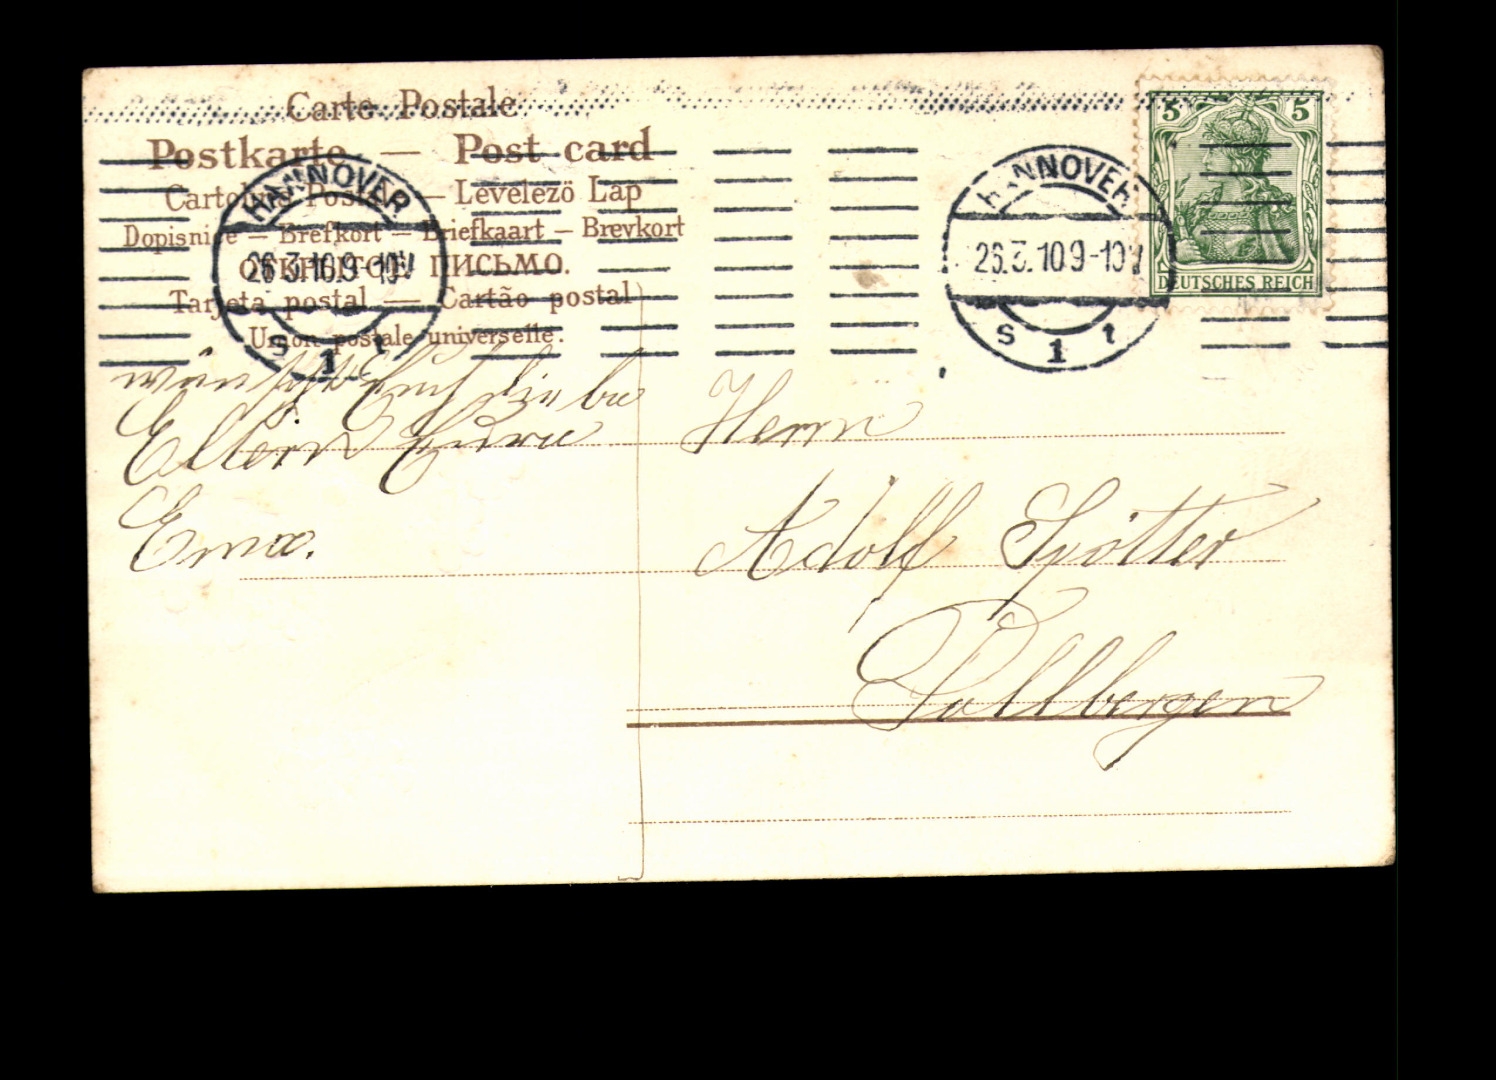 Carte Postale
Postkarte — Post card
Cartolina Postale — Levelezö Lap
Dopisnice — Brefkort — Briefkaart — Brevkort
ОТКРЫТОЕ ПИСЬМО.
Tarjeta postal — Cartão postal
Union postale universelle.
HANNOVER
26.3.10.9-10V
s 1 t
HANNOVER
26.3.10.9-10V
s 1 t
5 5
DEUTSCHES REICH
wünscht Euch liebe
Eltern Eure
Erna.
Herrn
Adolf Spötter